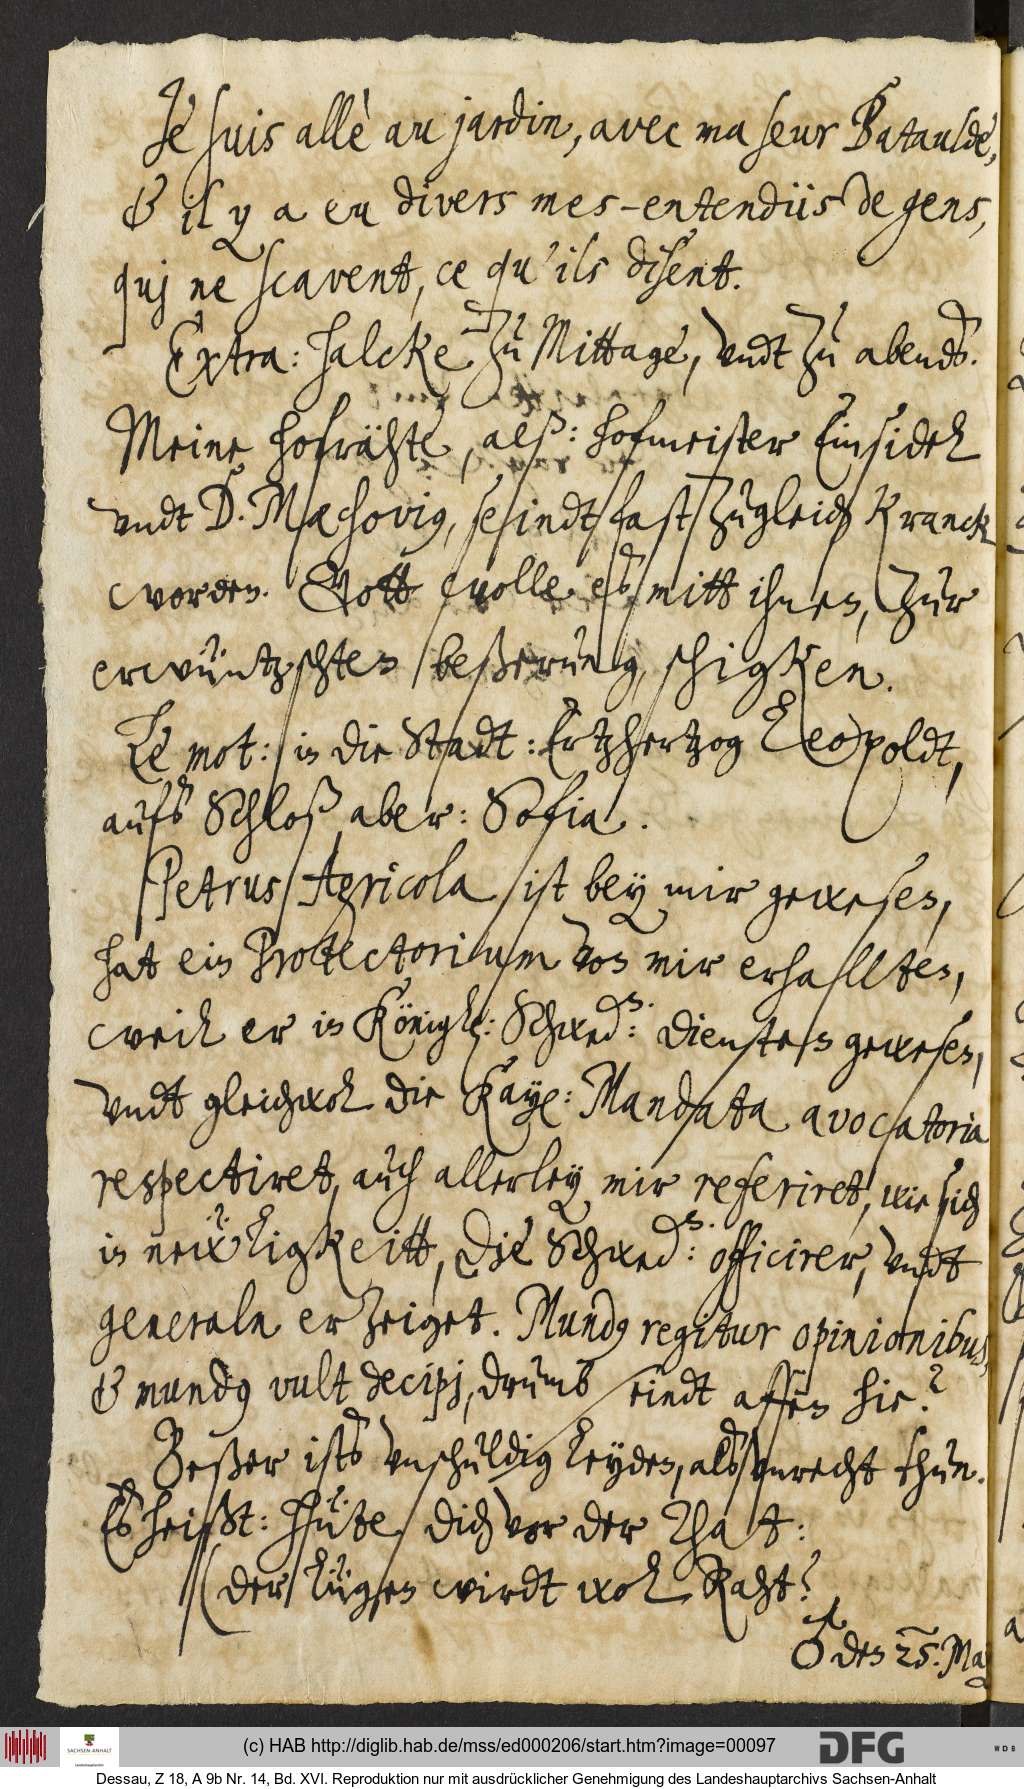 Je suis allè au jardin, avec ma seur Bataulde,
& il y a eu divers mes-entendüs de gens,
quj ne scavent, ce qu'ils disent.
Extra: Halcke zu Mittage, vndt zu abends.
Meine hofrähte, alß: hofmeister Einsidel
vndt D. Mechovius, seindt fast zugleich Kranck
worden. Gott wolle es mitt ihnen, zur
erwüntzschten beßerung, schigken.
Le mot: in die Stadt: Ertzhertzog Leopoldt,
aufs Schloß aber: Sofia.
Petrus Agricola ist bey mir gewesen,
hat ein Protectorium von mir erhallten,
weil er in Königl: Schwed: diensten gewesen,
vndt gleichwol die Kay: Mandata avocatoria
respectiret, auch allerley mir referiret, wie sich
in newligkeitt, die Schwed: officirer, vndt
generaln erzeiget. Mundus regitur opinionibus,
& mundus vult decipj, drumb sindt affen hie?
Beßer ists vnschuldig leyden, als vnrecht thun.
Es heißt: Hüte dich vor der That:
(der lügen wirdt wol Raht?
♂ den 25. Maj
(c) HAB http://diglib.hab.de/mss/ed000206/start.htm?image=00097
SACHSEN-ANHALT
DFG
WDB
Dessau, Z 18, A 9b Nr. 14, Bd. XVI. Reproduktion nur mit ausdrücklicher Genehmigung des Landeshauptarchivs Sachsen-Anhalt